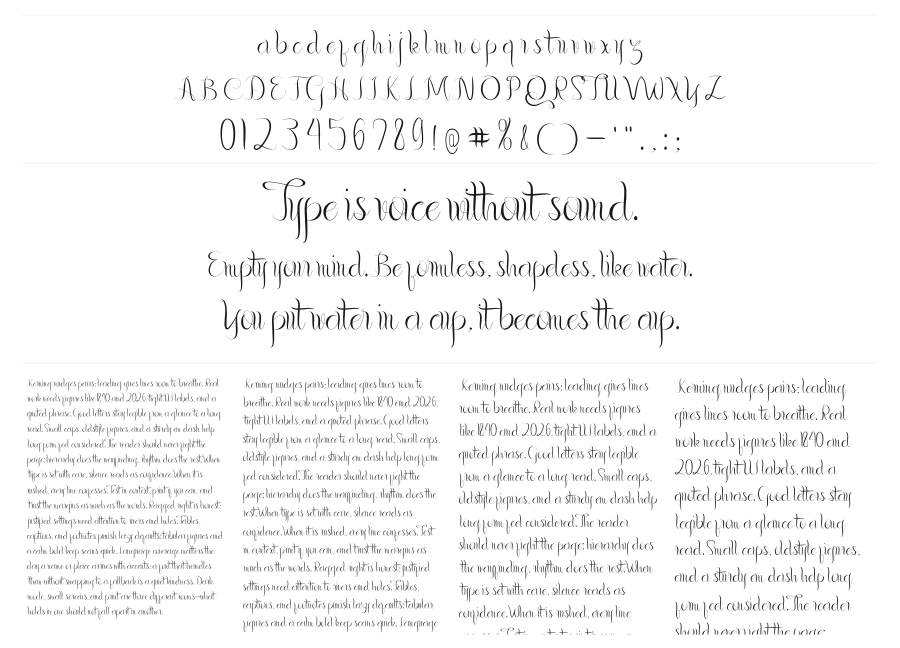 a b c d e f g h i j k l m n o p q r s t u v w x y z
A B C D E F G H I J K L M N O P Q R S T U V W X Y Z
0 1 2 3 4 5 6 7 8 9 ! @ # % & ( ) – ' " . , : ;
Type is voice without sound.
Empty your mind. Be formless, shapeless, like water.
You put water in a cup, it becomes the cup.
Kerning nudges pairs; leading gives lines room to breathe. Real
work needs figures like 1840 and 2026, tight WJ labels, and a
quoted phrase. Good letters stay legible from a glance to a long
read. Small caps, oldstyle figures, and a sturdy em dash help
long form feel considered. The reader should never fight the
page; hierarchy does the wayfinding, rhythm does the rest. When
type is set with care, silence reads as confidence. When it is
rushed, every line confesses. Test in context: print if you can, and
trust the margins as much as the words. Ragged right is honest;
justified settings need attention to rivers and holes. Tables,
captions, and footnotes punish lazy defaults; tabular figures and
a calm, bold keep seams quiet. Language coverage matters the
day a name or place arrives with accents; a font that handles
them without snapping to a fallback is a quiet kindness. Dark
mode, small screens, and print are three different rooms—what
holds in one should not fall apart in another.
Kerning nudges pairs; leading gives lines room to
breathe. Real work needs figures like 1840 and 2026,
tight WJ labels, and a quoted phrase. Good letters
stay legible from a glance to a long read. Small caps,
oldstyle figures, and a sturdy em dash help long form
feel considered. The reader should never fight the
page; hierarchy does the wayfinding, rhythm does the
rest. When type is set with care, silence reads as
confidence. When it is rushed, every line confesses. Test
in context: print if you can, and trust the margins as
much as the words. Ragged right is honest; justified
settings need attention to rivers and holes. Tables,
captions, and footnotes punish lazy defaults; tabular
figures and a calm, bold keep seams quiet. Language
Kerning nudges pairs; leading gives lines
room to breathe. Real work needs figures
like 1840 and 2026, tight WJ labels, and a
quoted phrase. Good letters stay legible
from a glance to a long read. Small caps,
oldstyle figures, and a sturdy em dash help
long form feel considered. The reader
should never fight the page; hierarchy does
the wayfinding, rhythm does the rest. When
type is set with care, silence reads as
confidence. When it is rushed, every line
Kerning nudges pairs; leading
gives lines room to breathe. Real
work needs figures like 1840 and
2026, tight WJ labels, and a
quoted phrase. Good letters stay
legible from a glance to a long
read. Small caps, oldstyle figures,
and a sturdy em dash help long
form feel considered. The reader
should never fight the page;